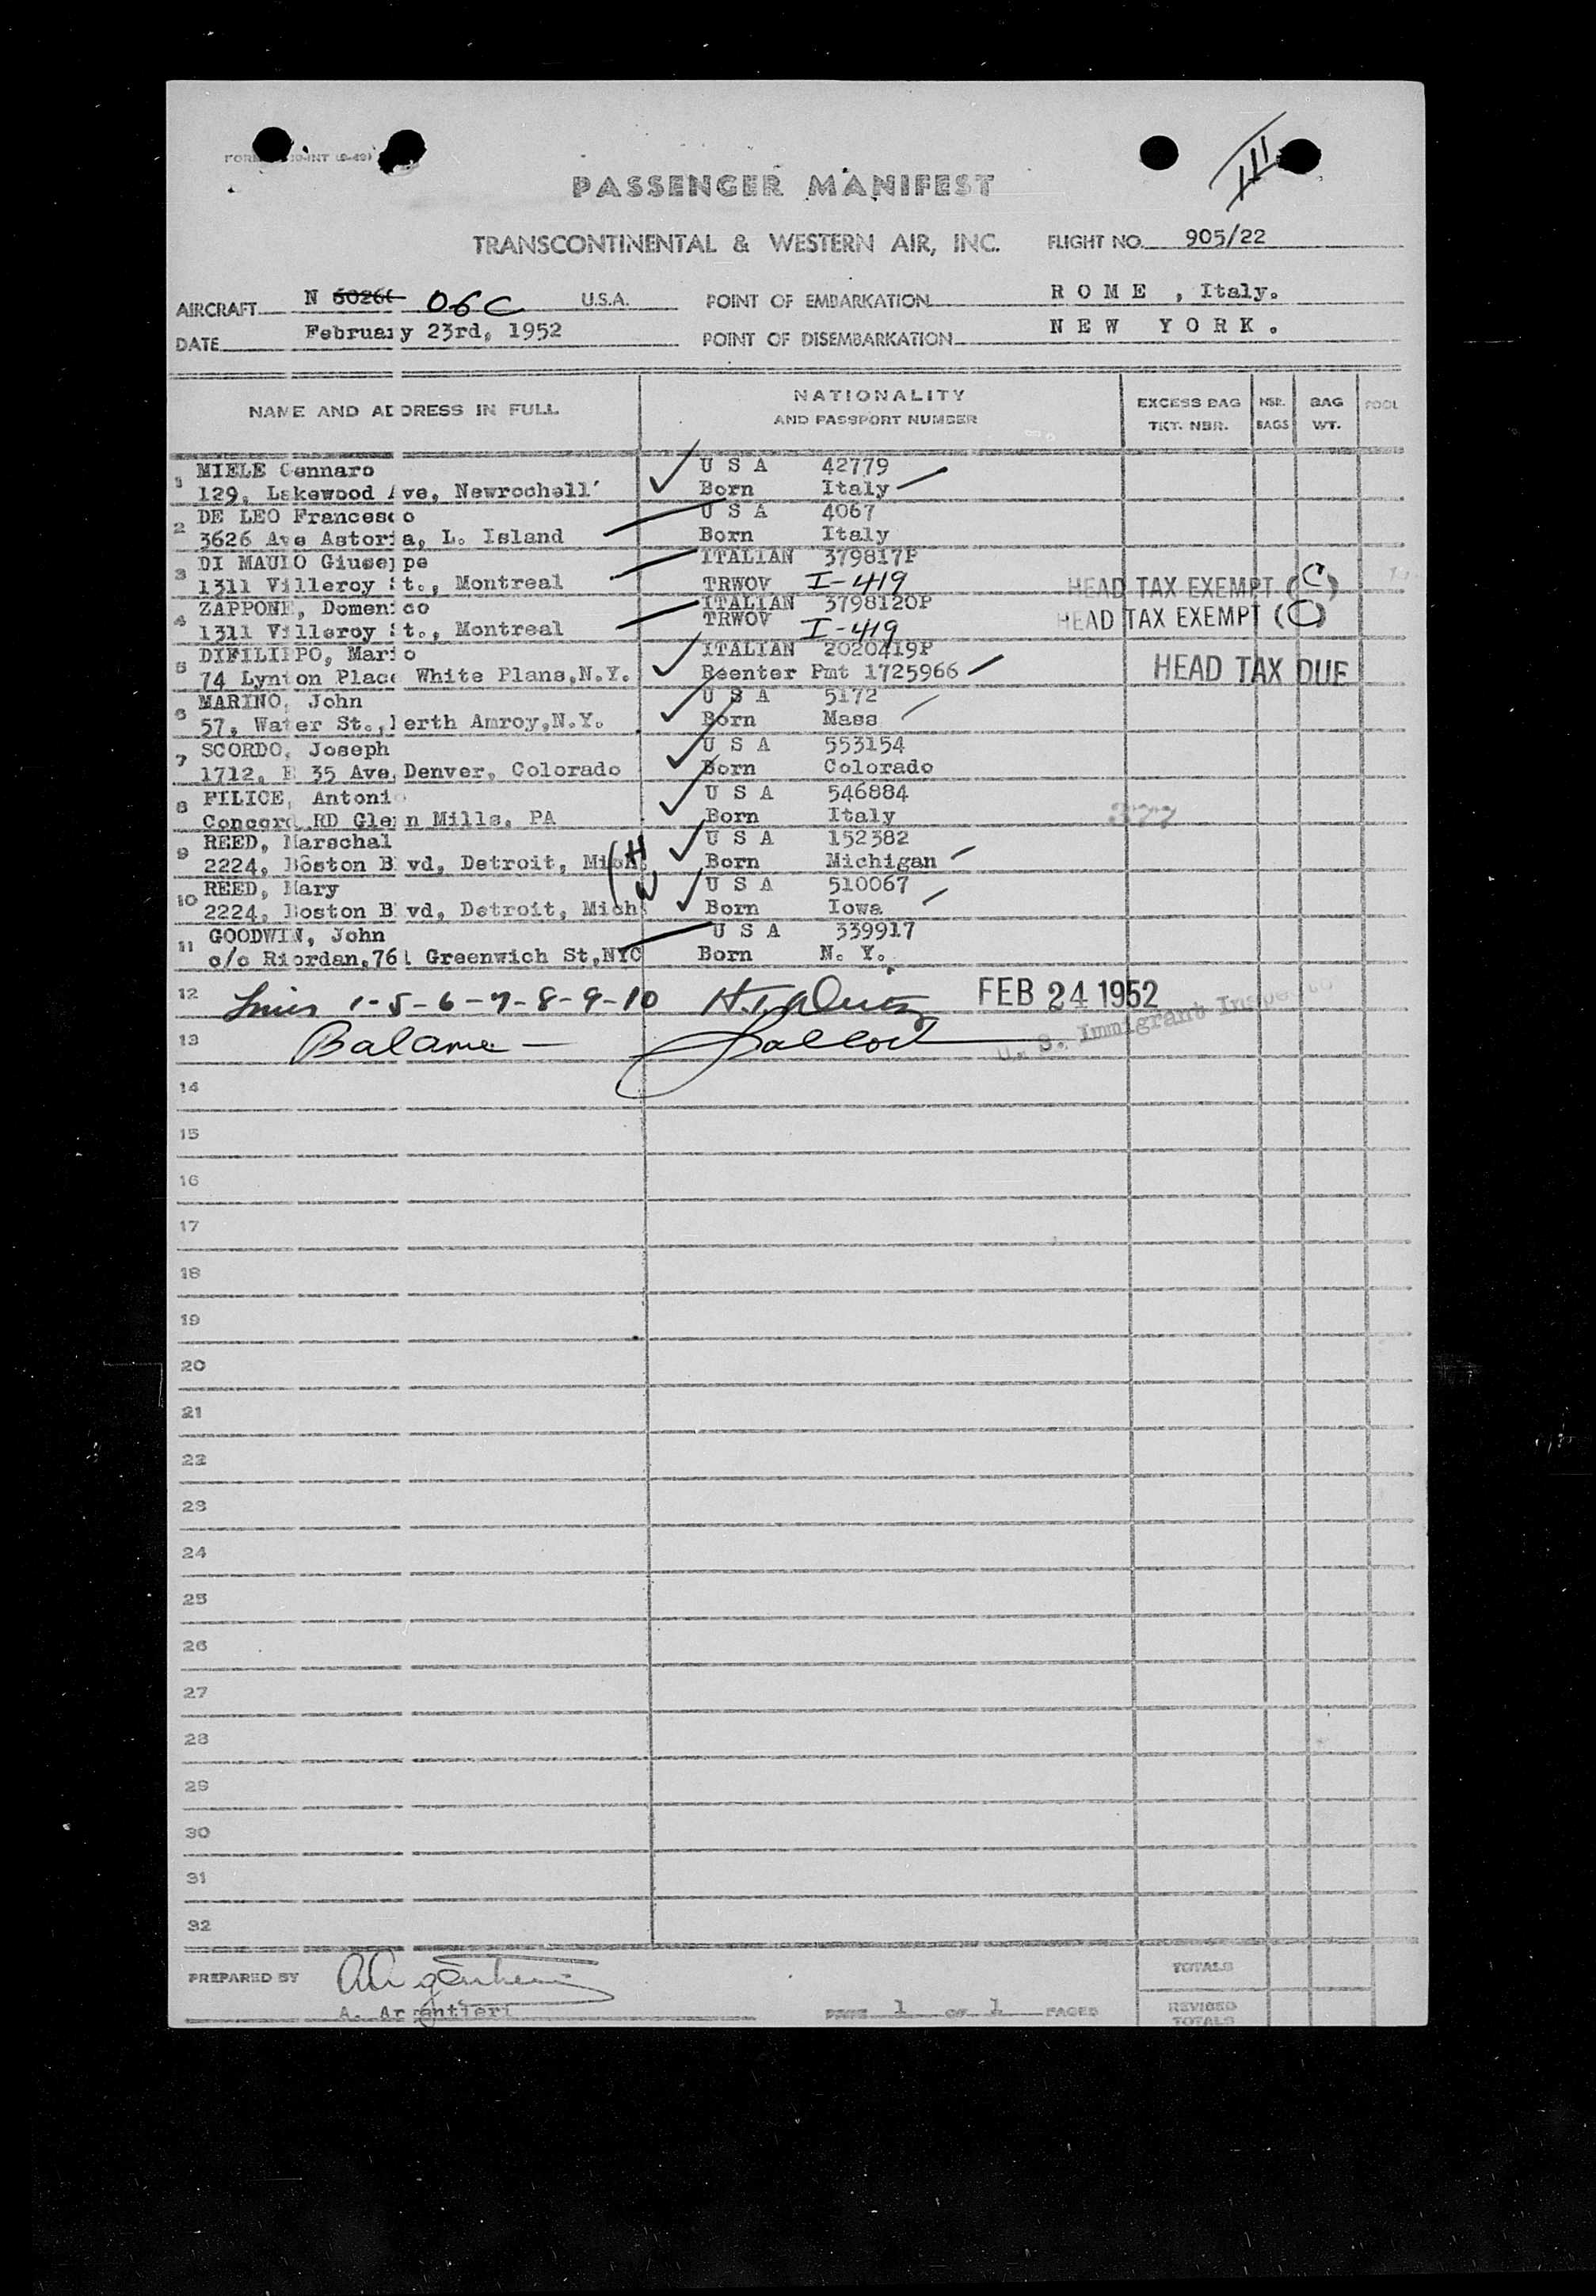 PASSENGER MANIFEST
TRANSCONTINENTAL & WESTERN AIR, INC. FLIGHT NO. 905/22
AIRCRAFT N 6026C 06C U.S.A. POINT OF EMBARKATION R O M E , Italy.
DATE February 23rd, 1952 POINT OF DISEMBARKATION N E W Y O R K .
NAME AND ADDRESS IN FULL NATIONALITY AND PASSPORT NUMBER EXCESS BAG TKT. NBR. NBR. BAGS BAG WT. POOL
1 MIELE Gennaro U S A 42779
129, Lakewood Ave, Newrochell' Born Italy
2 DE LEO Francesco U S A 4067
3626 Ave Astoria, L. Island Born Italy
3 DI MAULO Giuseppe ITALIAN 379817P
1311 Villeroy St., Montreal TRWOV I-419 HEAD TAX EXEMPT (C)
4 ZAPPONE, Domenico ITALIAN 3798120P
1311 Villeroy St., Montreal TRWOV I-419 HEAD TAX EXEMPT (C)
5 DIFILIPPO, Mario ITALIAN 2020419P
74 Lynton Place White Plans,N.Y. Reenter Pmt 1725966 HEAD TAX DUE
6 MARINO, John U S A 5172
57, Water St.,Perth Amroy,N.Y. Born Mass
7 SCORDO, Joseph U S A 553154
1712, E 35 Ave, Denver, Colorado Born Colorado
8 FILICE, Antonio U S A 546884
Concord RD Glenn Mills, PA Born Italy
9 REED, Marschal U S A 152382
2224, Boston Blvd, Detroit, Mich. H Born Michigan
10 REED, Mary W U S A 510067
2224, Boston Blvd, Detroit, Mich. Born Iowa
11 GOODWIN, John U S A 339917
c/o Riordan,761 Greenwich St,NYC Born N. Y.
12 Lines 1-5-6-7-8-9-10 FEB 24 1952
13 Balance - U. S. Immigrant Inspector
14
15
16
17
18
19
20
21
22
23
24
25
26
27
28
29
30
31
32
PREPARED BY TOTALS
A. Argentieri PAGE 1 OF 1 PAGES REVISED TOTALS